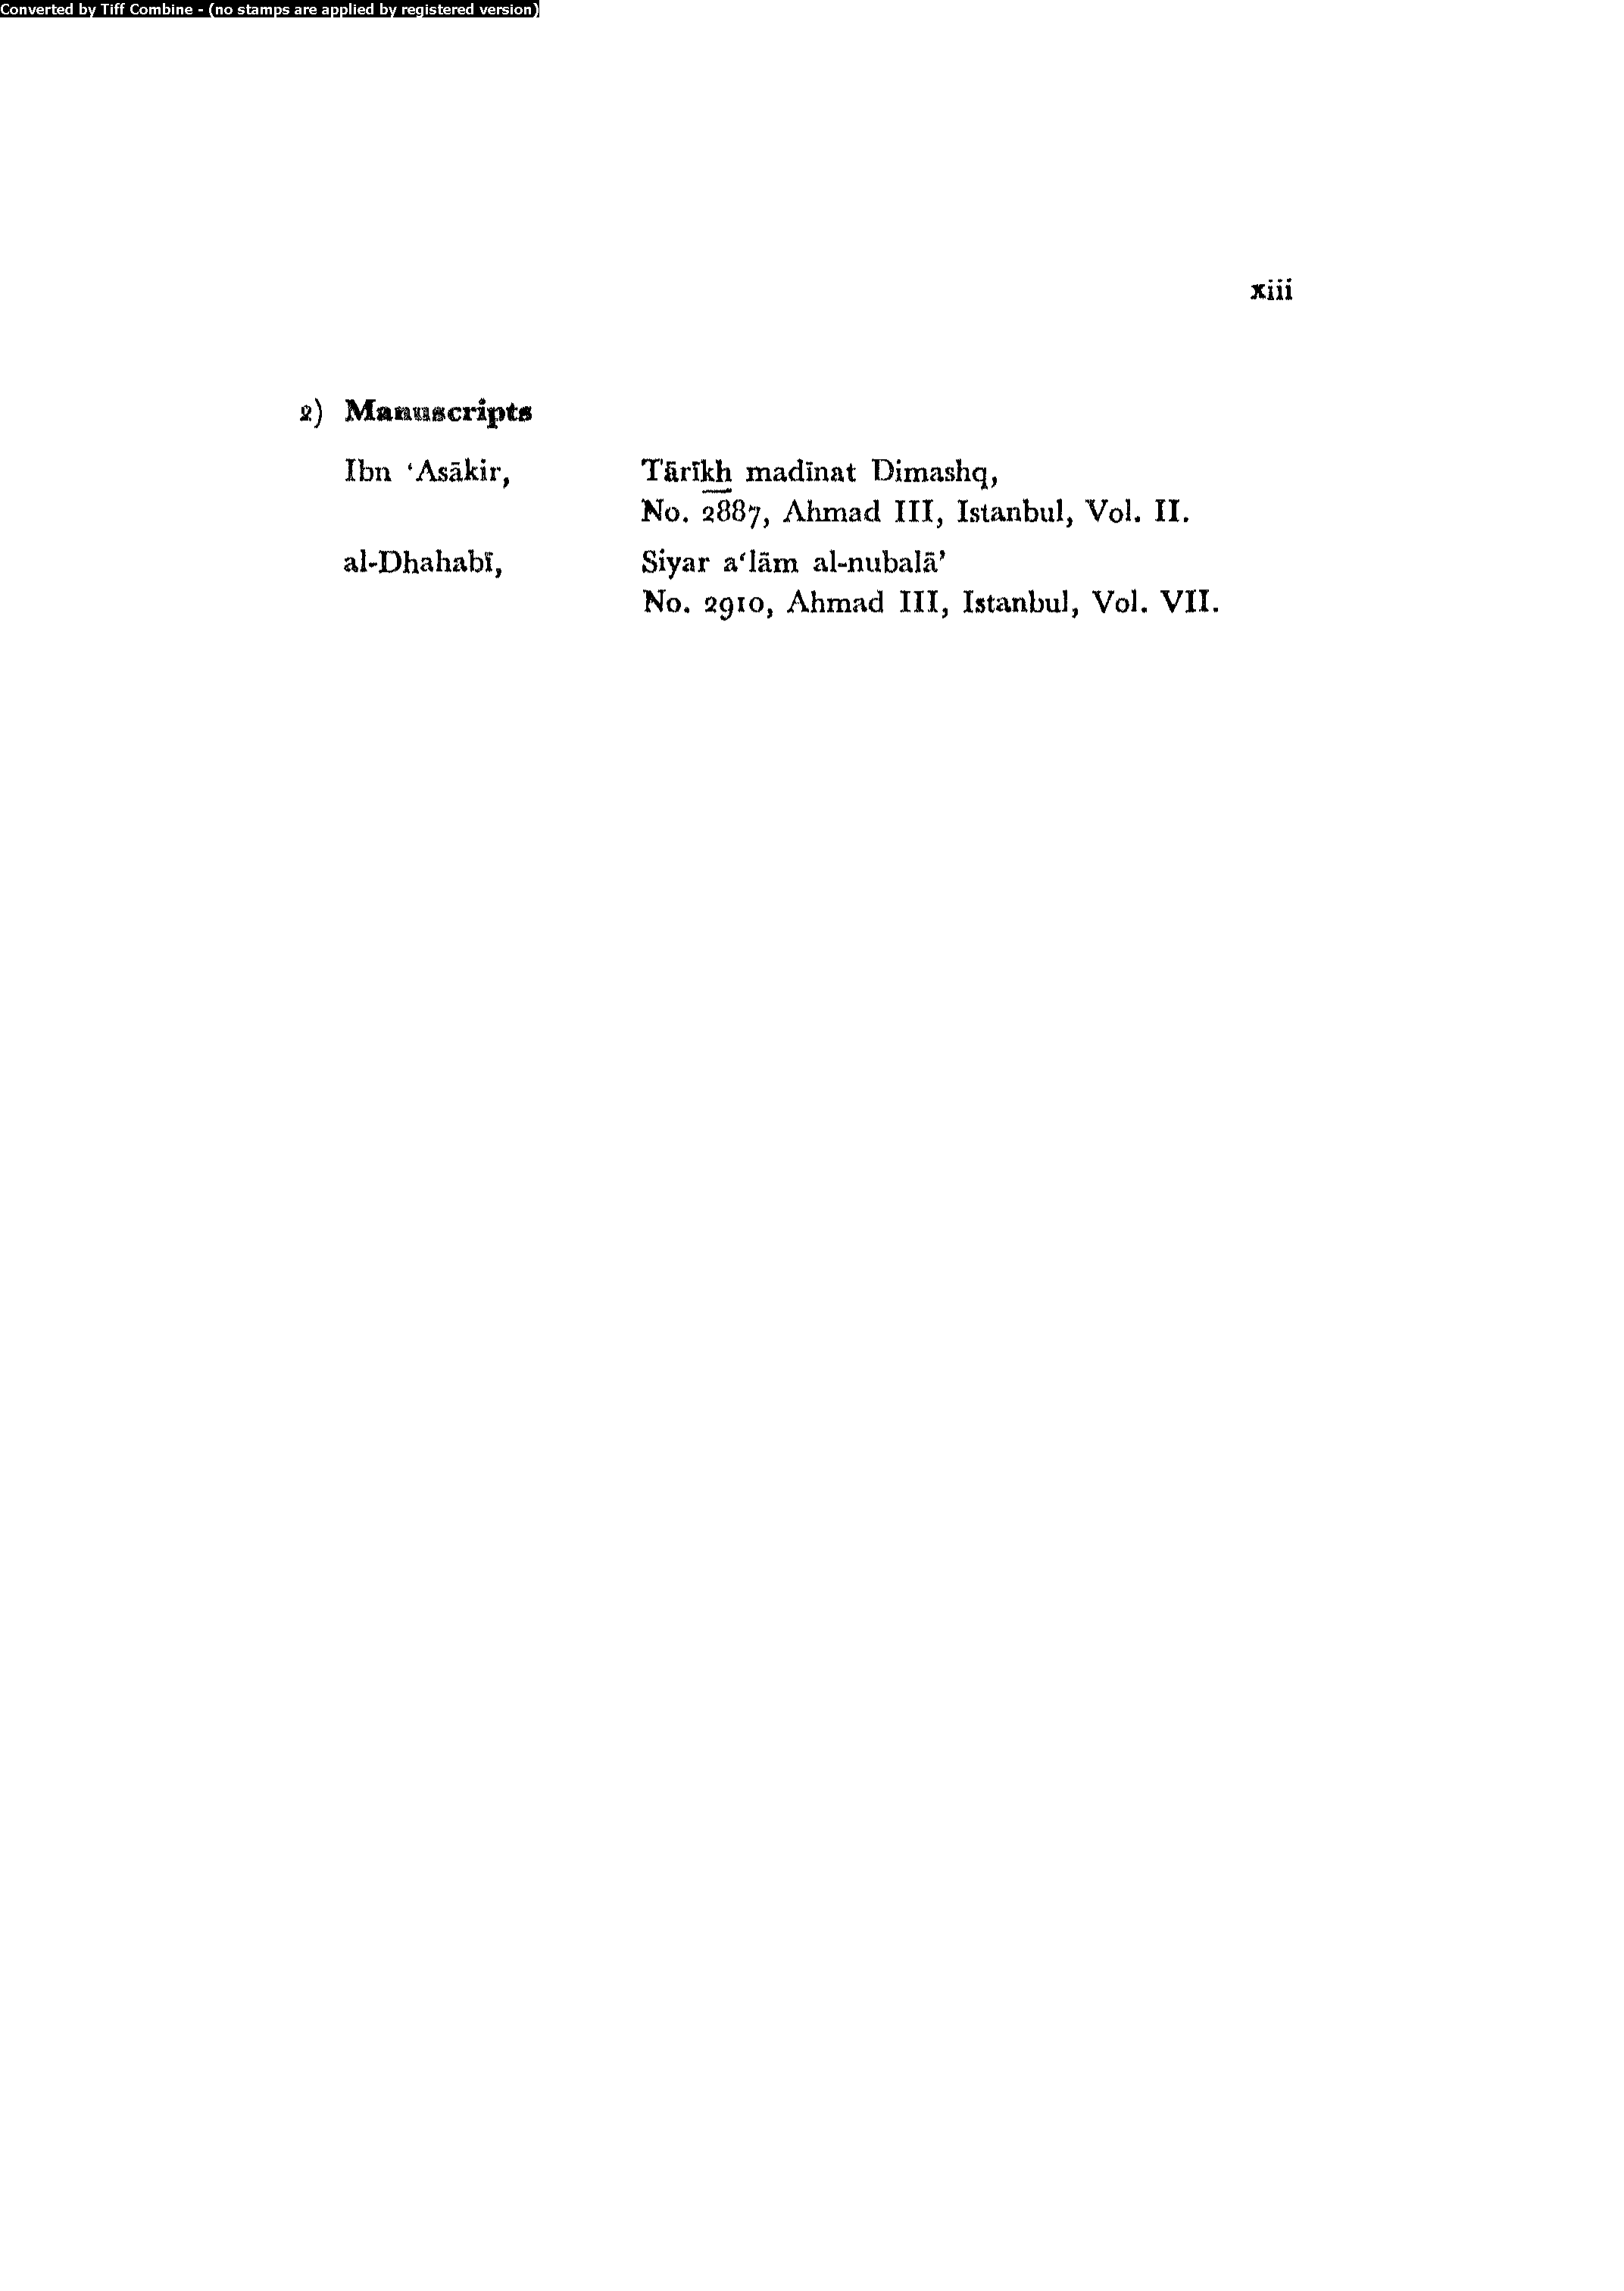 Converted by Tiff Combine - (no stamps are applied by registered version)
xiii
2) Manuscripts
Ibn ‘Asākir, Tārīkh madīnat Dimashq,
No. 2887, Ahmad III, Istanbul, Vol. II.
al-Dhahabī, Siyar a‘lām al-nubalā’
No. 2910, Ahmad III, Istanbul, Vol. VII.